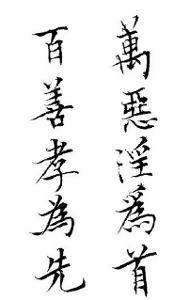 萬惡淫爲首
百善孝為先